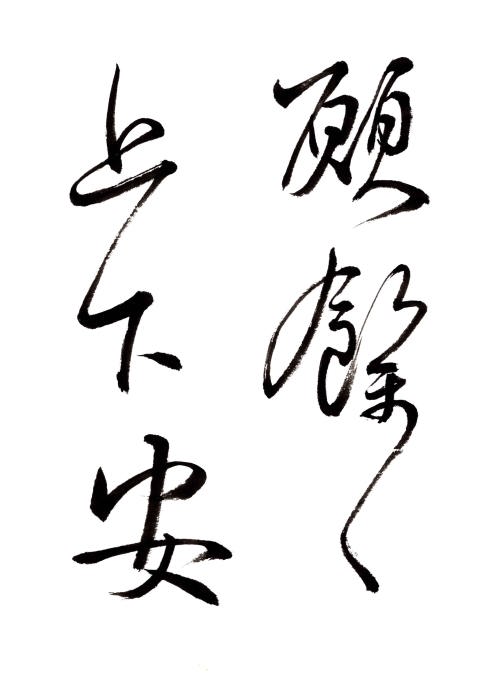 願餘〱
上下安